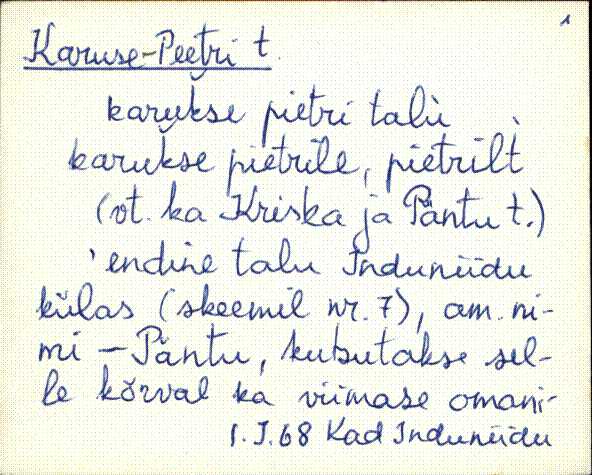 1
Karuse-Peetri t.
karukse pietri talù
karukse pietrile, pietrilt̀
(vt. ka Kriska ja Päntu t.)
'endine talu Induniidu
külas (skeemil nr. 7), am. ni-
mi - Päntu, kutsutakse sel-
le kõrval ka viimase omani-
1.I.68 Kad Induniidu